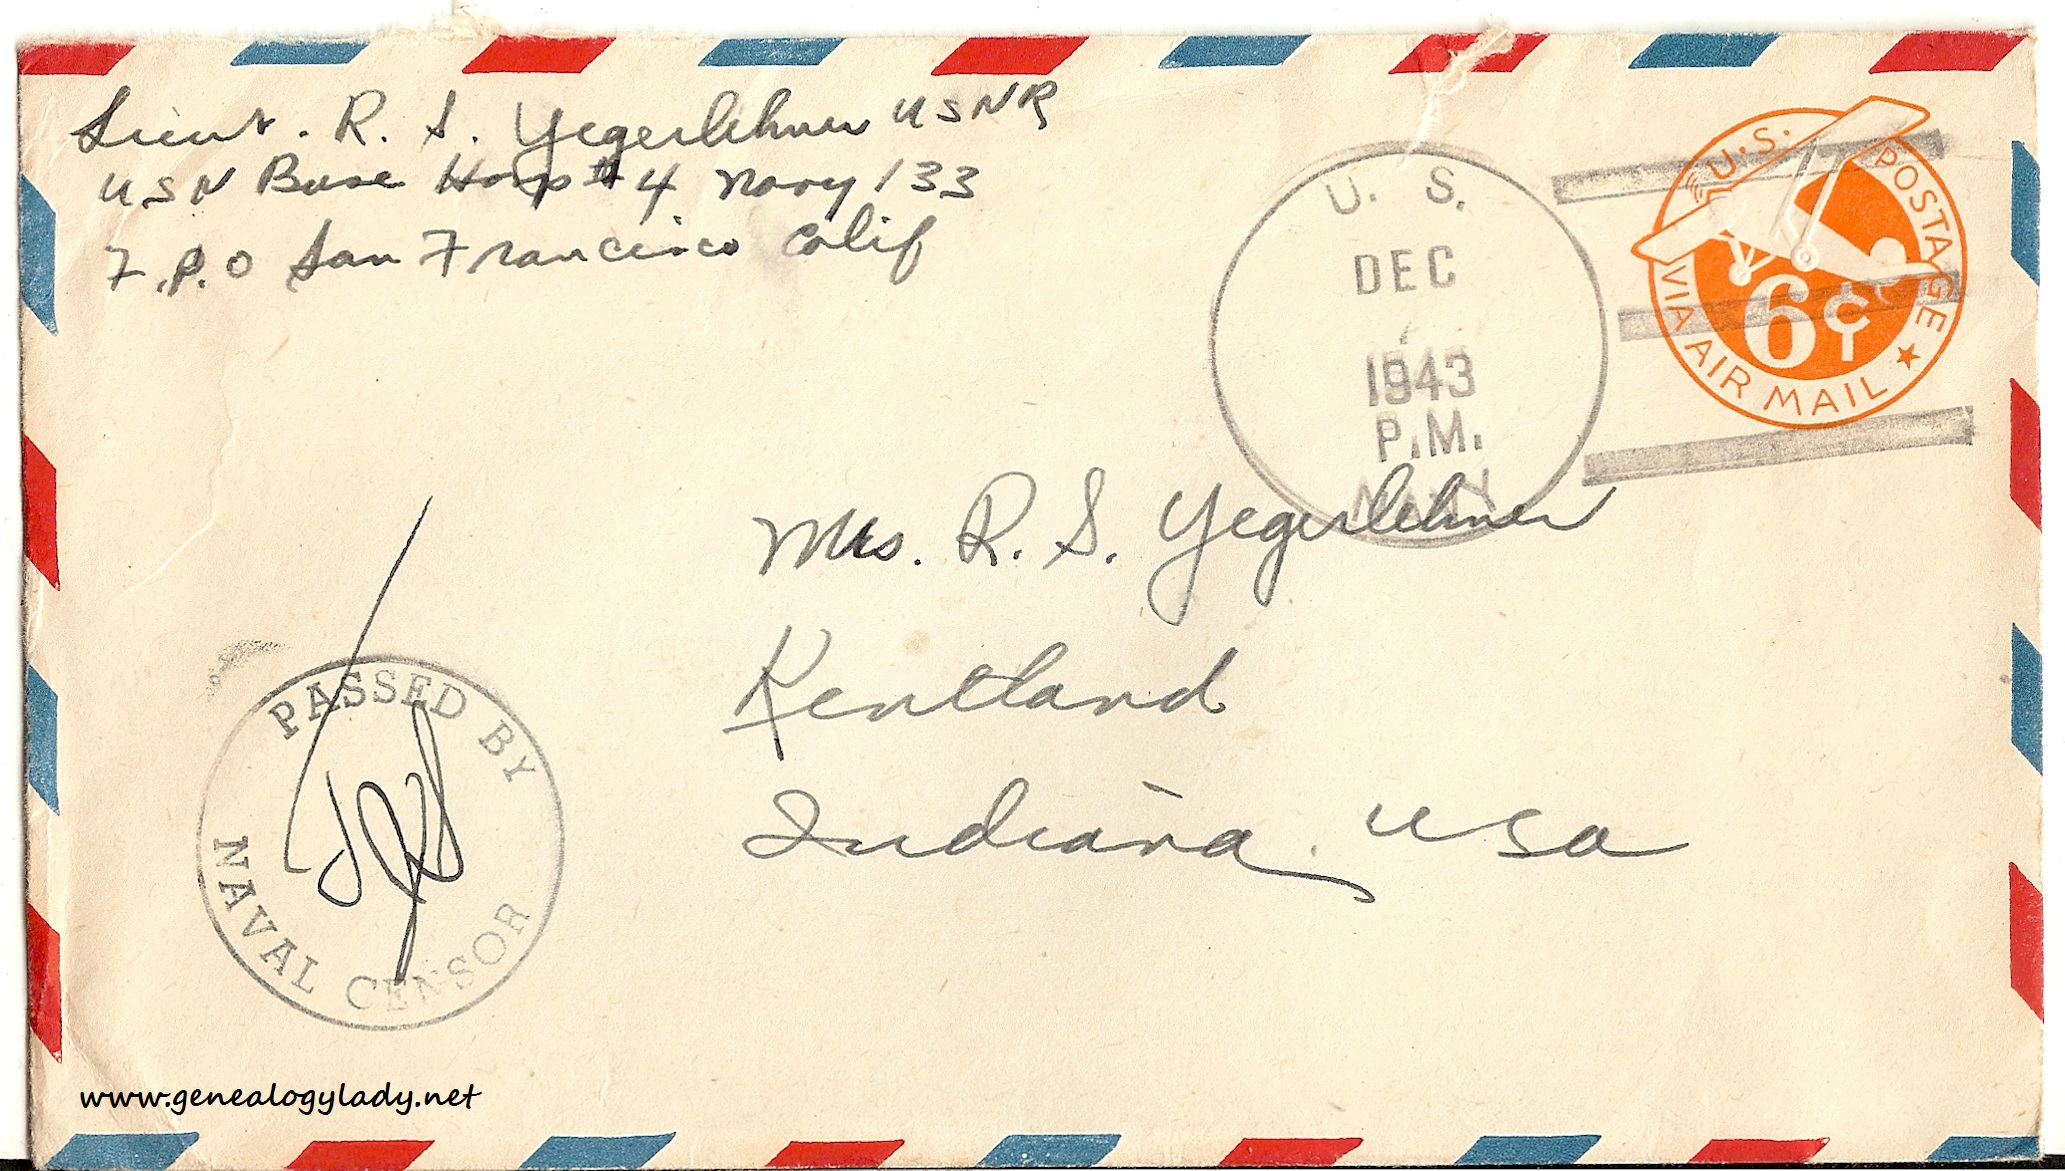 Lieut. R. S. Yegerlehner USNR
USN Base Hosp # 4 Navy 133
F.P.O San Francisco Calif
U. S.
DEC
1943
P.M.
NAVY
U.S. POSTAGE
6¢
VIA AIR MAIL
Mrs. R. S. Yegerlehner
Kentland
Indiana. USA
PASSED BY
NAVAL CENSOR
www.genealogylady.net